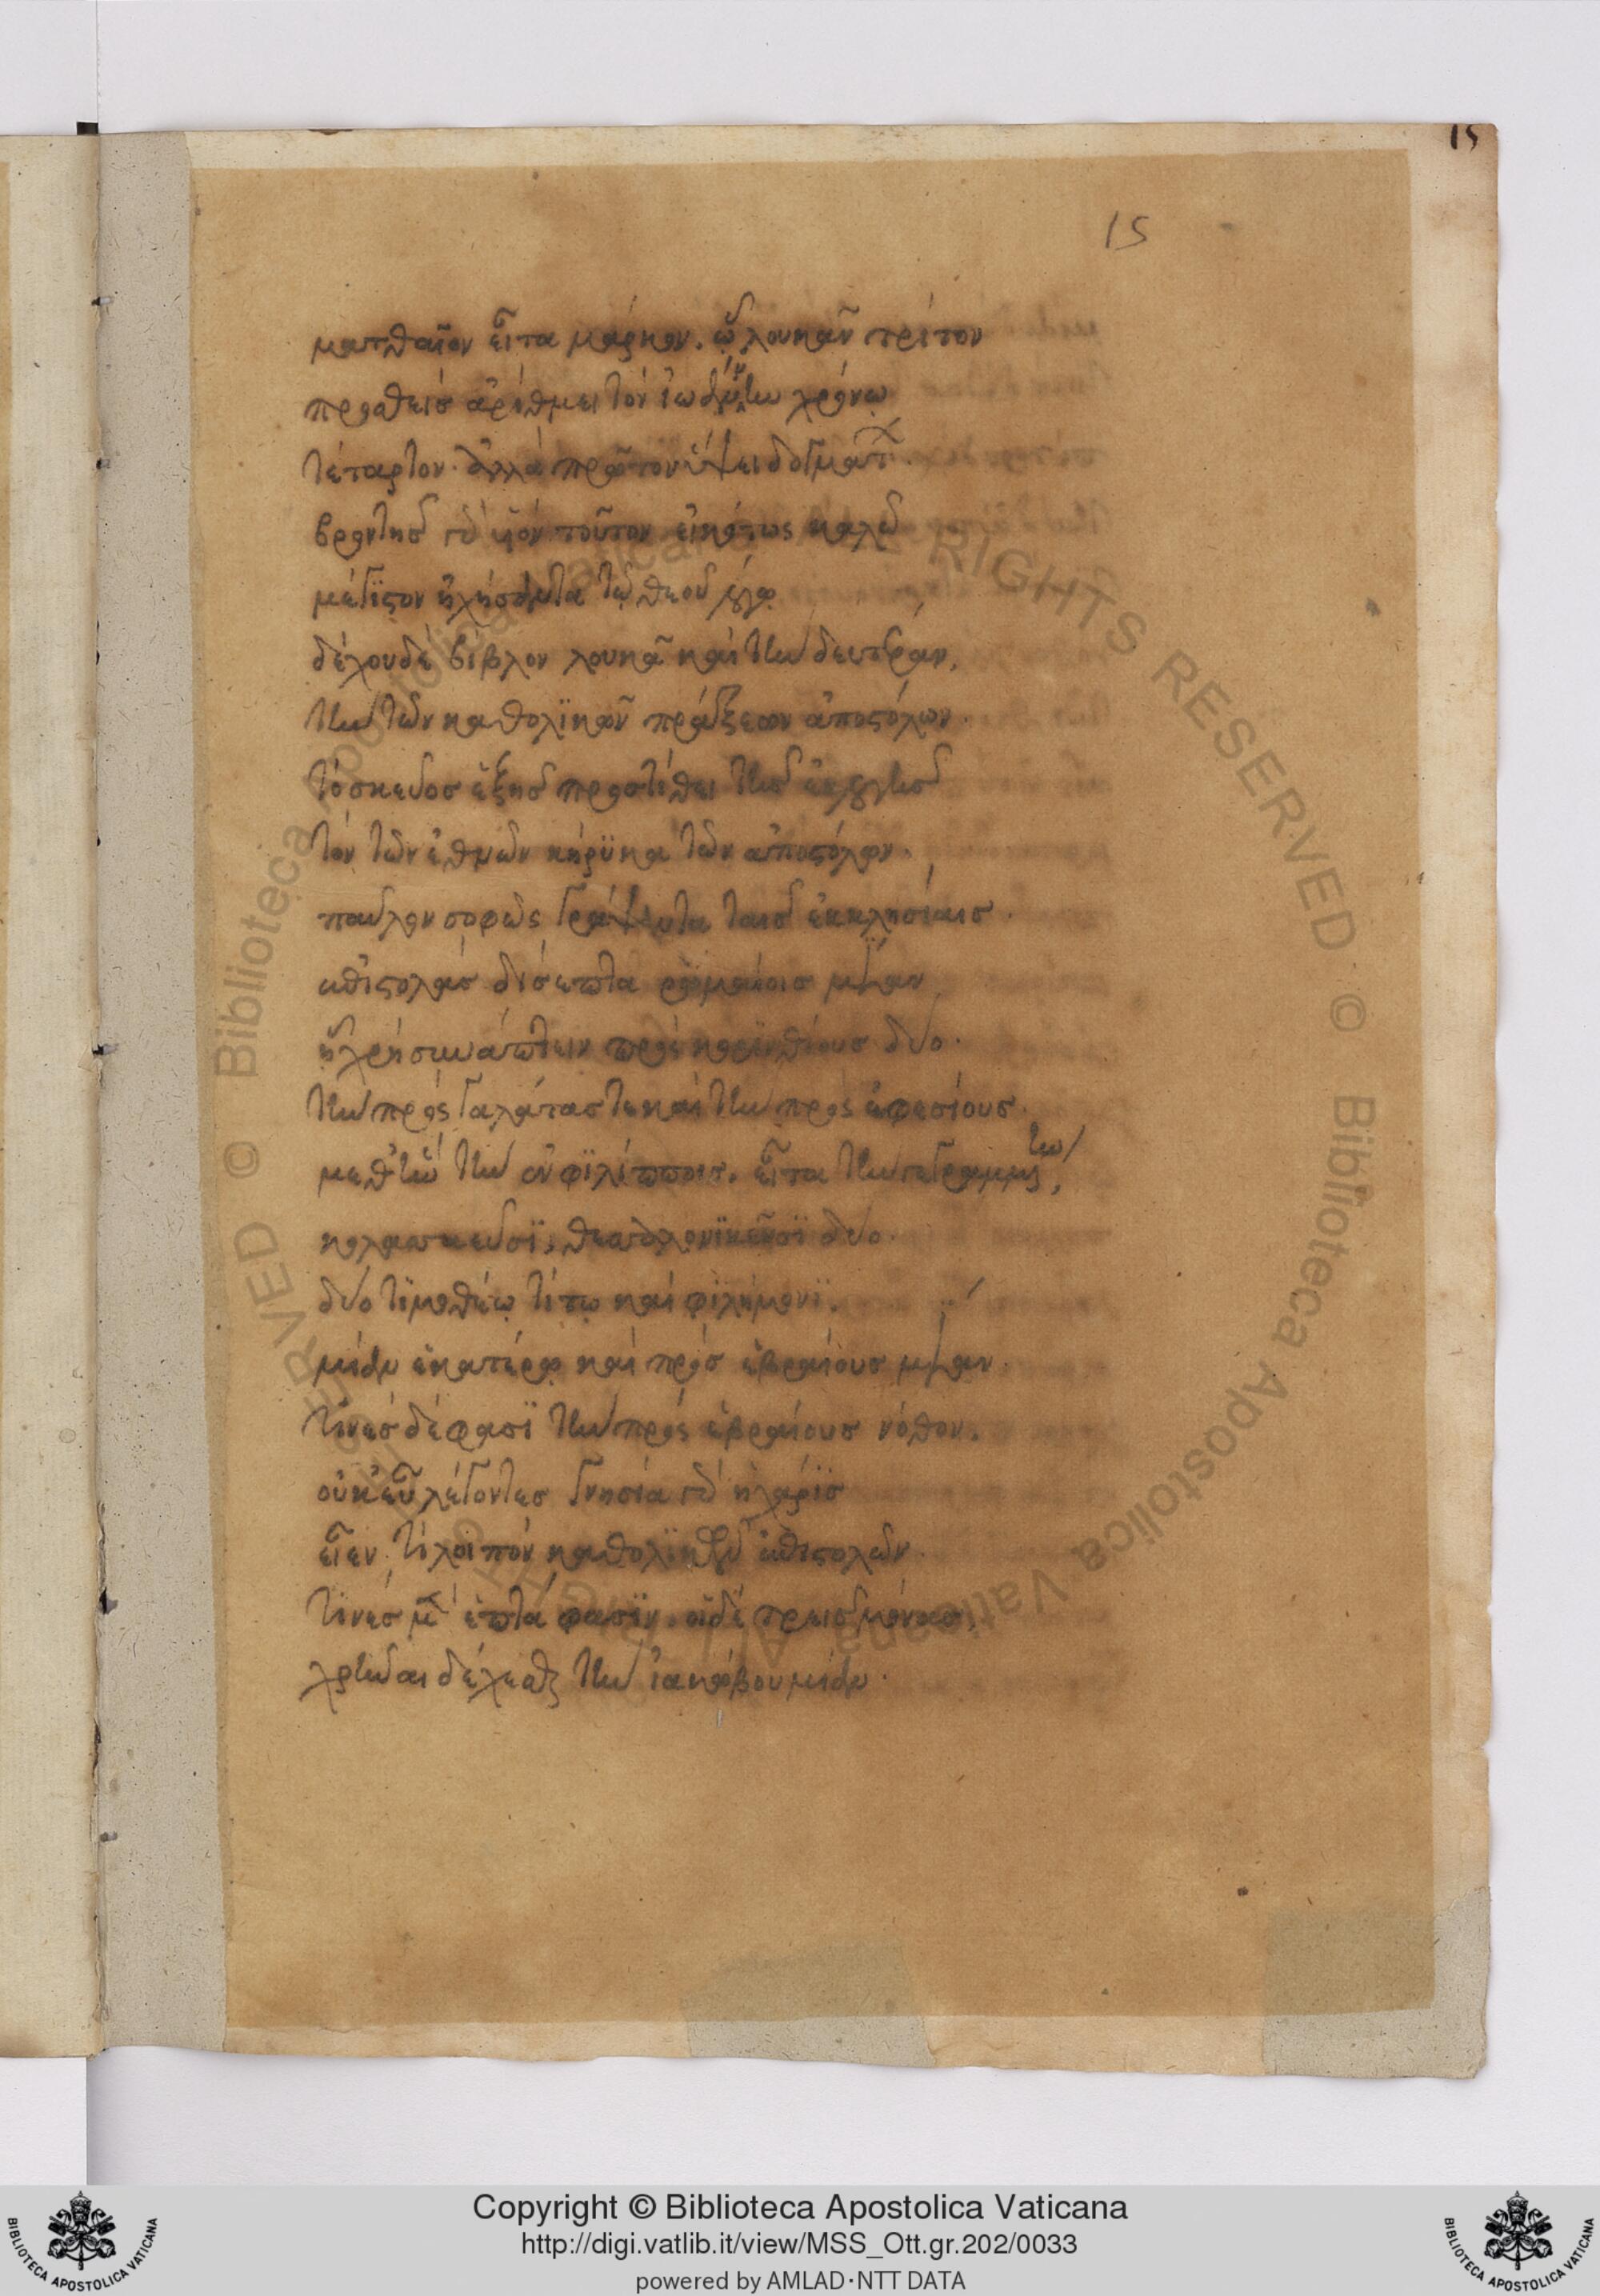 15
15
ματθαῖον εἶτα μάρκον. ᾧ λουκᾶν τρίτον
προσθεὶς ἀρίθμει τὸν ἰωάννην τῶ χρόνω
τέταρτον· ἀλλὰ πρῶτον ὕψει δογμάτ
βροντῆς γὰρ υἱὸν τοῦτον εἰκότως καλῶ
μέγϊστον ἠχήσαντα τῷ θεοῦ λόγῳ
δέχου δὲ βίβλον λουκᾶ καὶ τὴν δευτέραν,
τὴν τῶν καθολϊκῶν πράξεων ἀποστόλων.
τὸ σκεῦος ἑξῆς προστίθει τῆς ἐκλογῆς
τὸν τῶν ἐθνῶν κήρϋκα τῶν ἀποστόλων.
παῦλον σοφῶς γράψαντα ταῖς ἐκκλησίαις.
ἐπιστολὰς δὶς ἑπτὰ ῥωμαίοις μίαν
ᾗ χρὴ συνάπτειν πρὸς κορϊνθίους δύο.
τὴν πρὸς γαλάτας τε καὶ τὴν πρὸς ἐφεσίους.
μεθ' ἣν τὴν ἐν φϊλίπποις. εἶτα τὴν γεγραμμένην
κολασσαεῦσϊ, θεσσαλονϊκεῦσϊ δύο.
δύο τϊμοθέῳ τίτῳ καὶ φϊλήμονϊ.
μίαν ἑκατέρῳ καὶ πρὸς ἑβραίους μίαν.
τινὲς δέ φασϊ τὴν πρὸς ἑβραίους νόθον.
οὐκ εὖ λέγοντες γνησία γὰρ ἡ χάρϊς
εἶεν. τί λοιπὸν καθολϊκῶν ἐπιστολῶν.
τινὲς μὲν ἑπτά φασϊν. οἱ δὲ τρεῖς μόνας,
χρῆναι δέχεσθαι τὴν ἰακώβου μίαν.
Copyright © Biblioteca Apostolica Vaticana
http://digi.vatlib.it/view/MSS_Ott.gr.202/0033
powered by AMLAD·NTT DATA